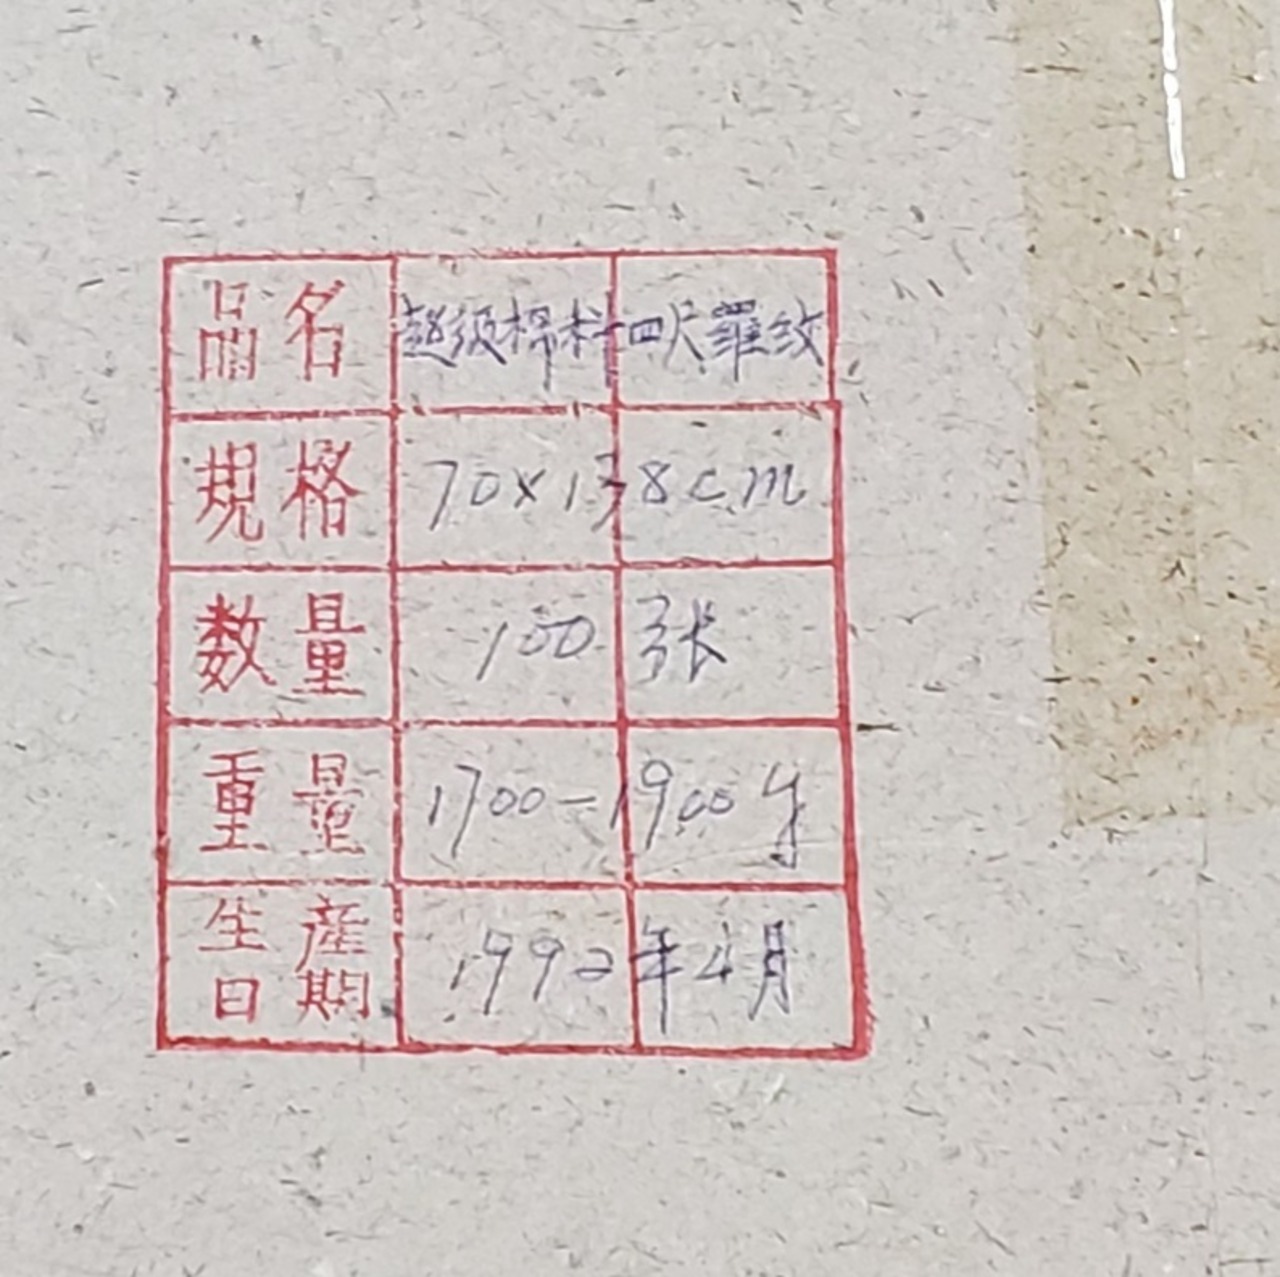 品名 超级棉料四尺羅纹
規格 70×138cm
数量 100张
重量 1700-1900g
生産日期 1992年4月